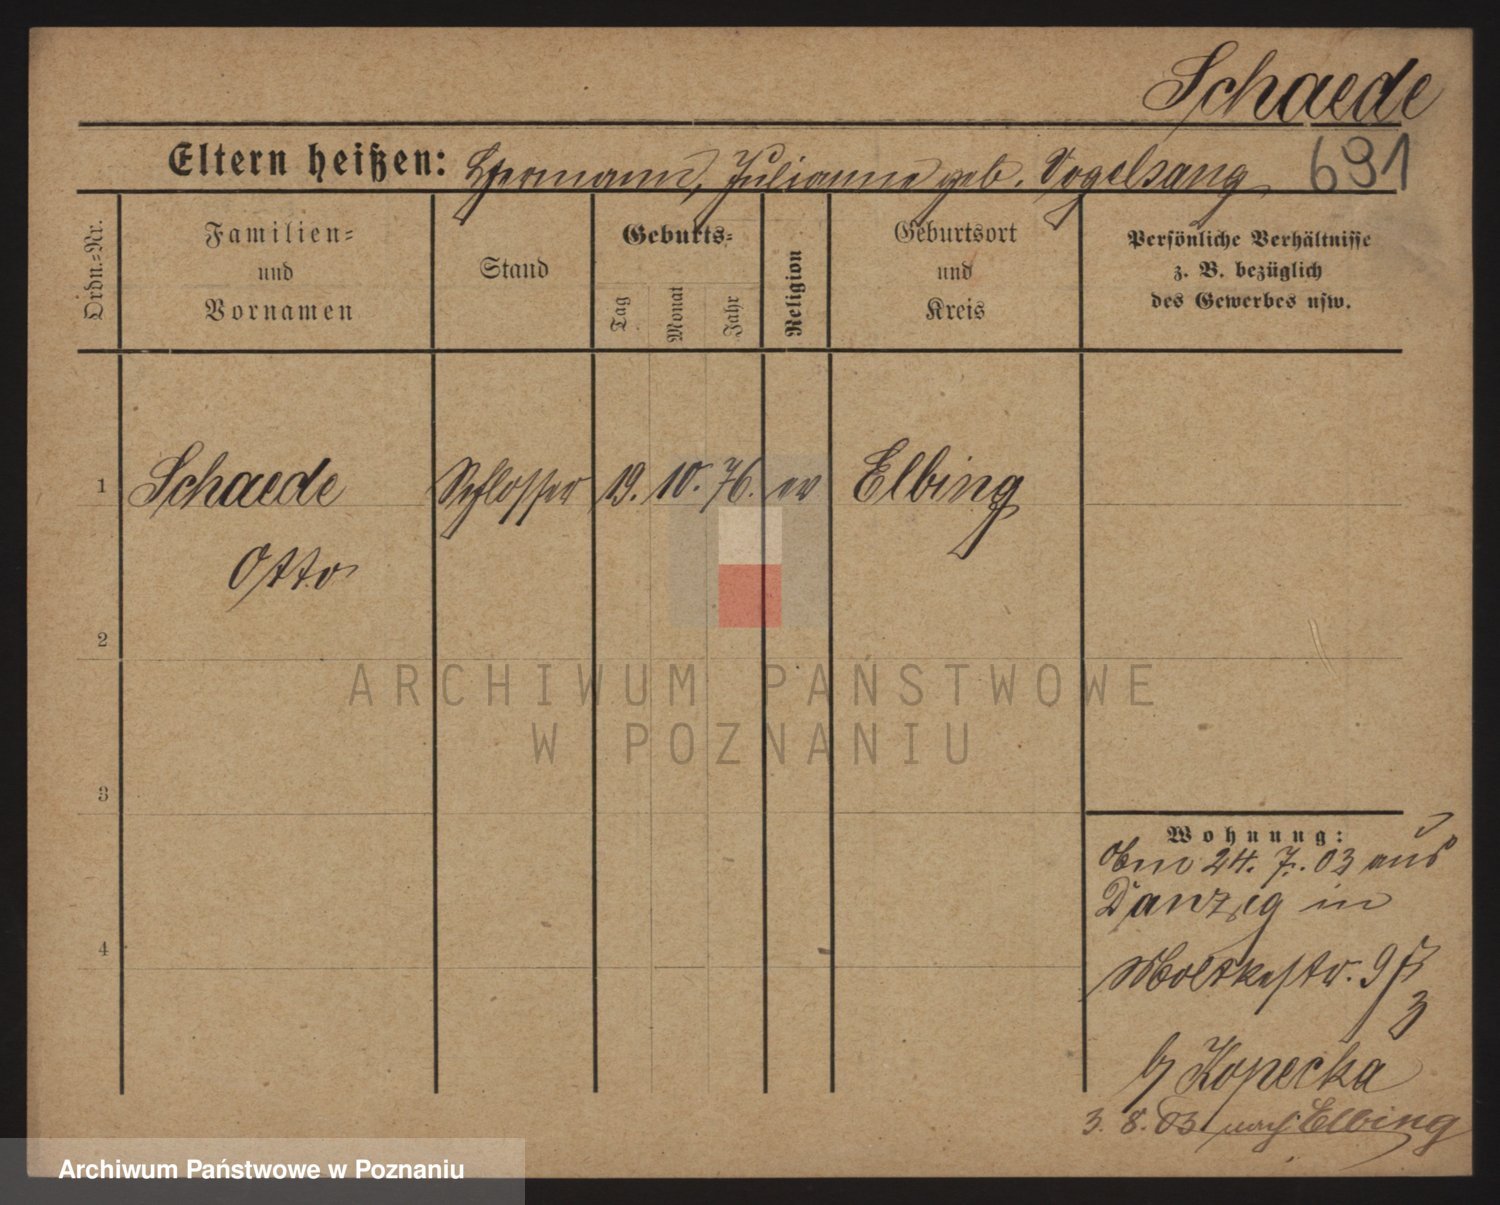 Schaede
Eltern heißen: Hermann, Julianne geb. Vogelsang 691
Ordn.-Nr.
Familien-
und
Vornamen
Stand
Geburts-
Tag
Monat
Jahr
Religion
Geburtsort
und
Kreis
Persönliche Verhältnisse
z. B. bezüglich
des Gewerbes usw.
1 Schaede Schlosser 19. 10. 76. ev Elbing
Otto
2
3
4
Wohnung:
Am 24. 7. 03 aus
Danzig in
Moltkestr. 9
3
b/ Kopecka
3. 8. 03 nach Elbing
ARCHIWUM PAŃSTWOWE
W POZNANIU
Archiwum Państwowe w Poznaniu